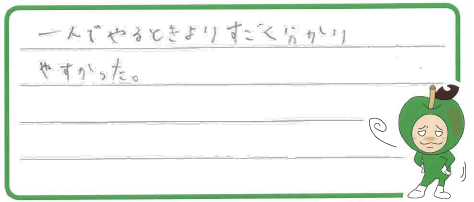 一人でやるときよりすごく分かり
やすかった。